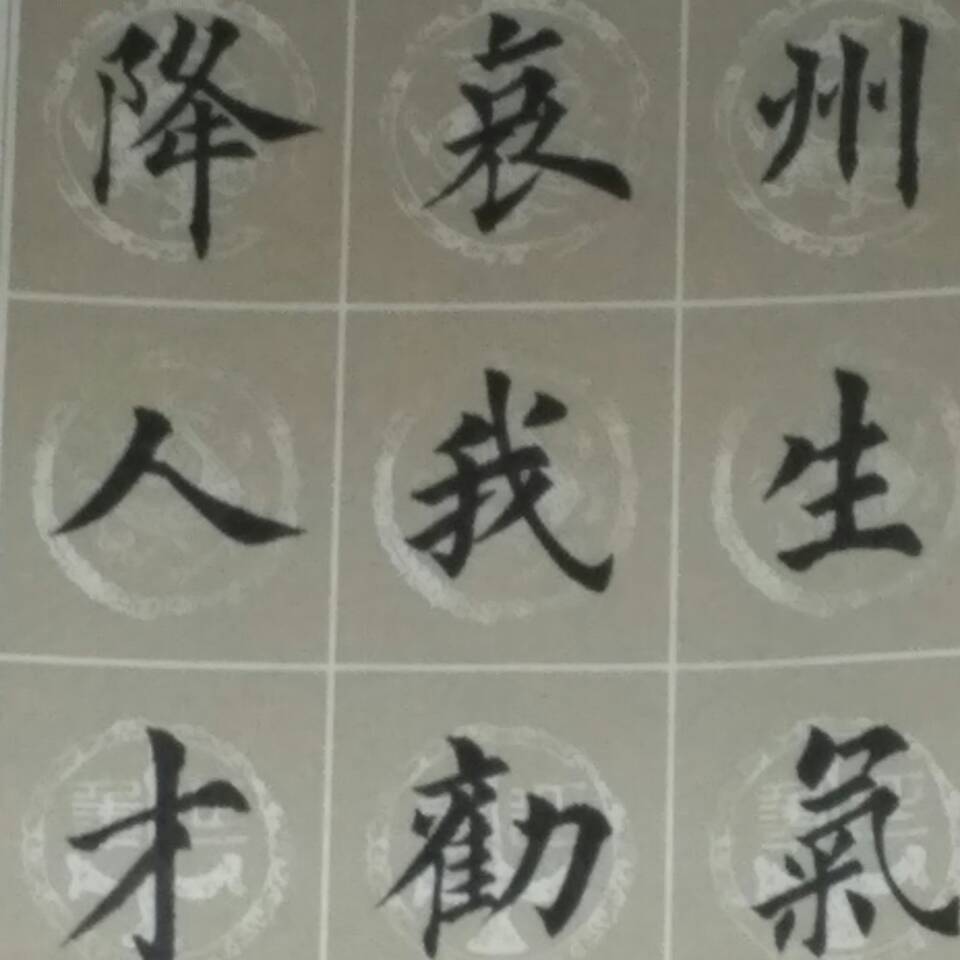 州生氣
哀我勸
降人才